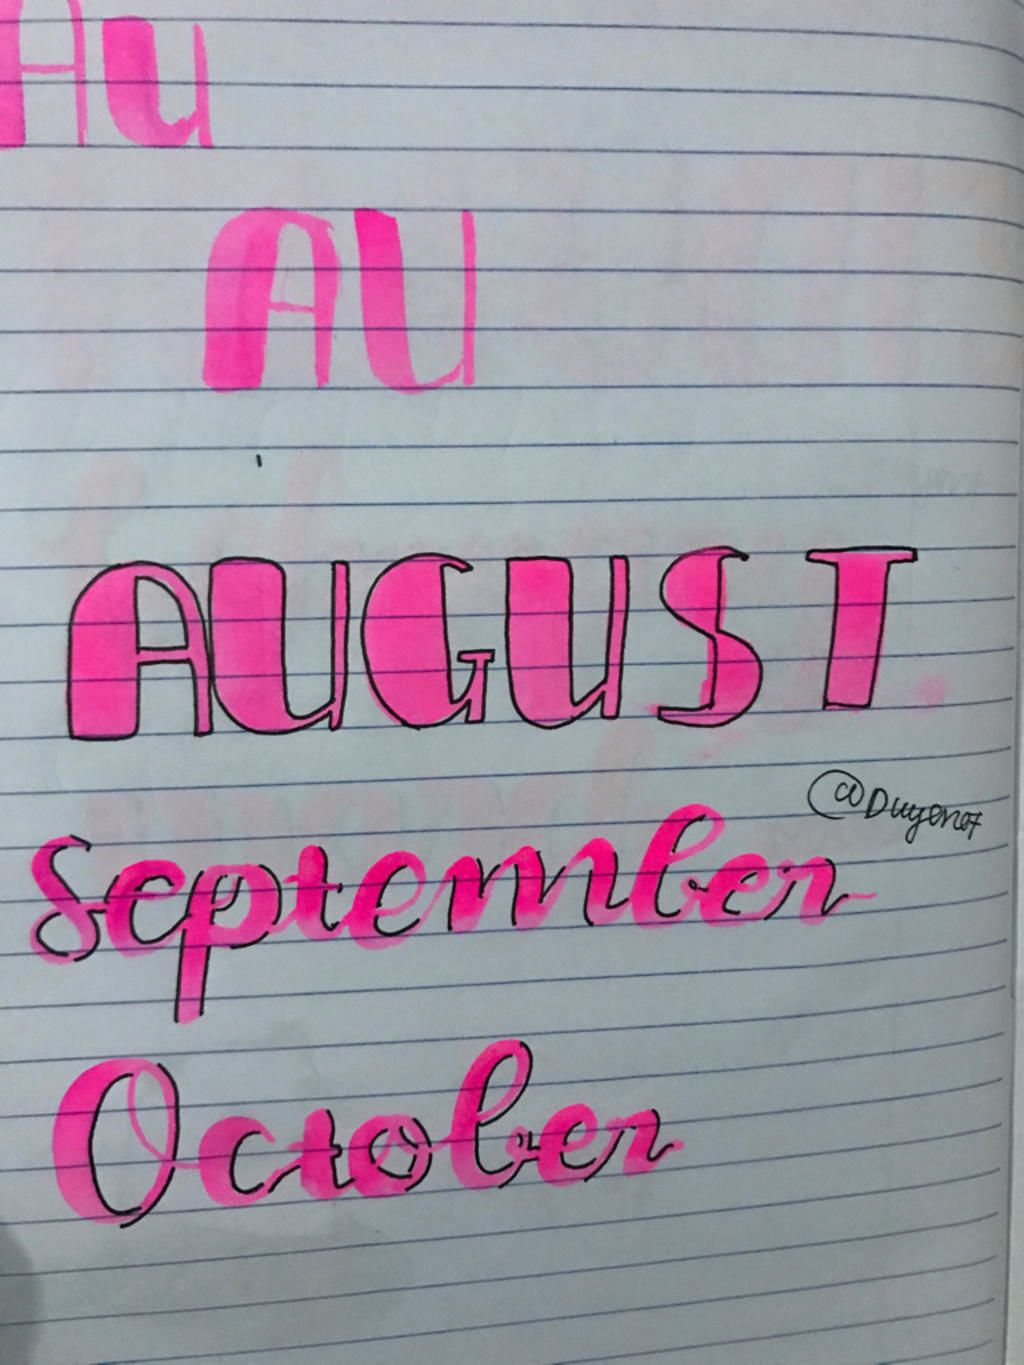 Au
AU
AUGUST
@Duyenct
September
October